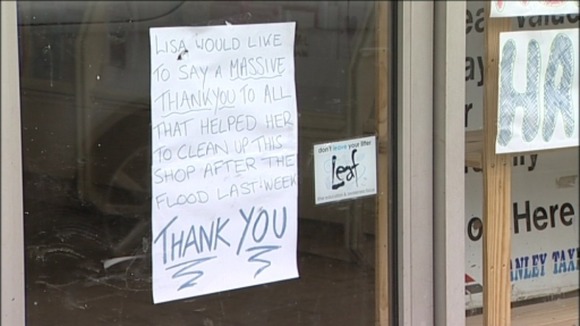 LISA WOULD LIKE
TO SAY A MASSIVE
THANKYOU TO ALL
THAT HELPED HER
TO CLEAN UP THIS
SHOP AFTER THE
FLOOD LAST WEEK
THANK YOU
don't leave your litter
Leaf
Value
HA
or
Here
ANLEY TAXI